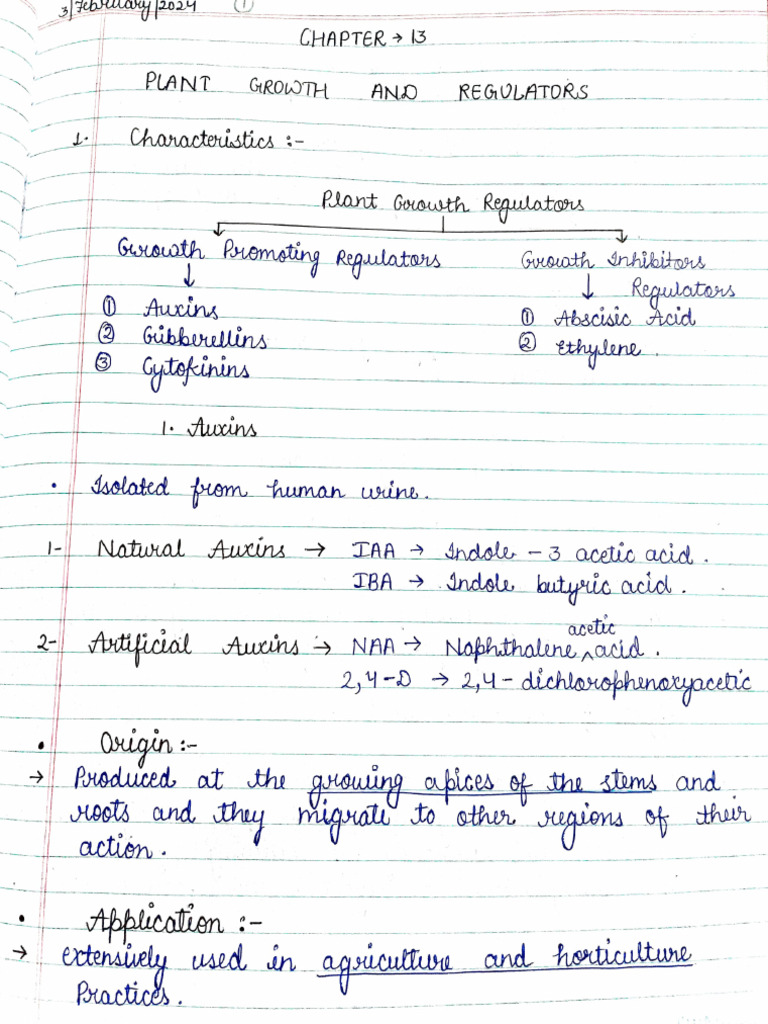 3/February/2024 ①
CHAPTER → 13
PLANT GROWTH AND REGULATORS
1. Characteristics :-
Plant Growth Regulators
Growth Promoting Regulators
Growth Inhibitors
Regulators
① Auxins
② Gibberellins
③ Cytokinins
① Abscisic Acid
② Ethylene.
1. Auxins
• Isolated from human urine.
1- Natural Auxins → IAA → Indole - 3 acetic acid.
IBA → Indole butyric acid.
2- Artificial Auxins → NAA → Naphthalene acetic acid.
2,4-D → 2,4- dichlorophenoxyacetic
• Origin :-
→ Produced at the growing apices of the stems and
roots and they migrate to other regions of their
action.
• Application :-
→ extensively used in agriculture and horticulture
Practices.